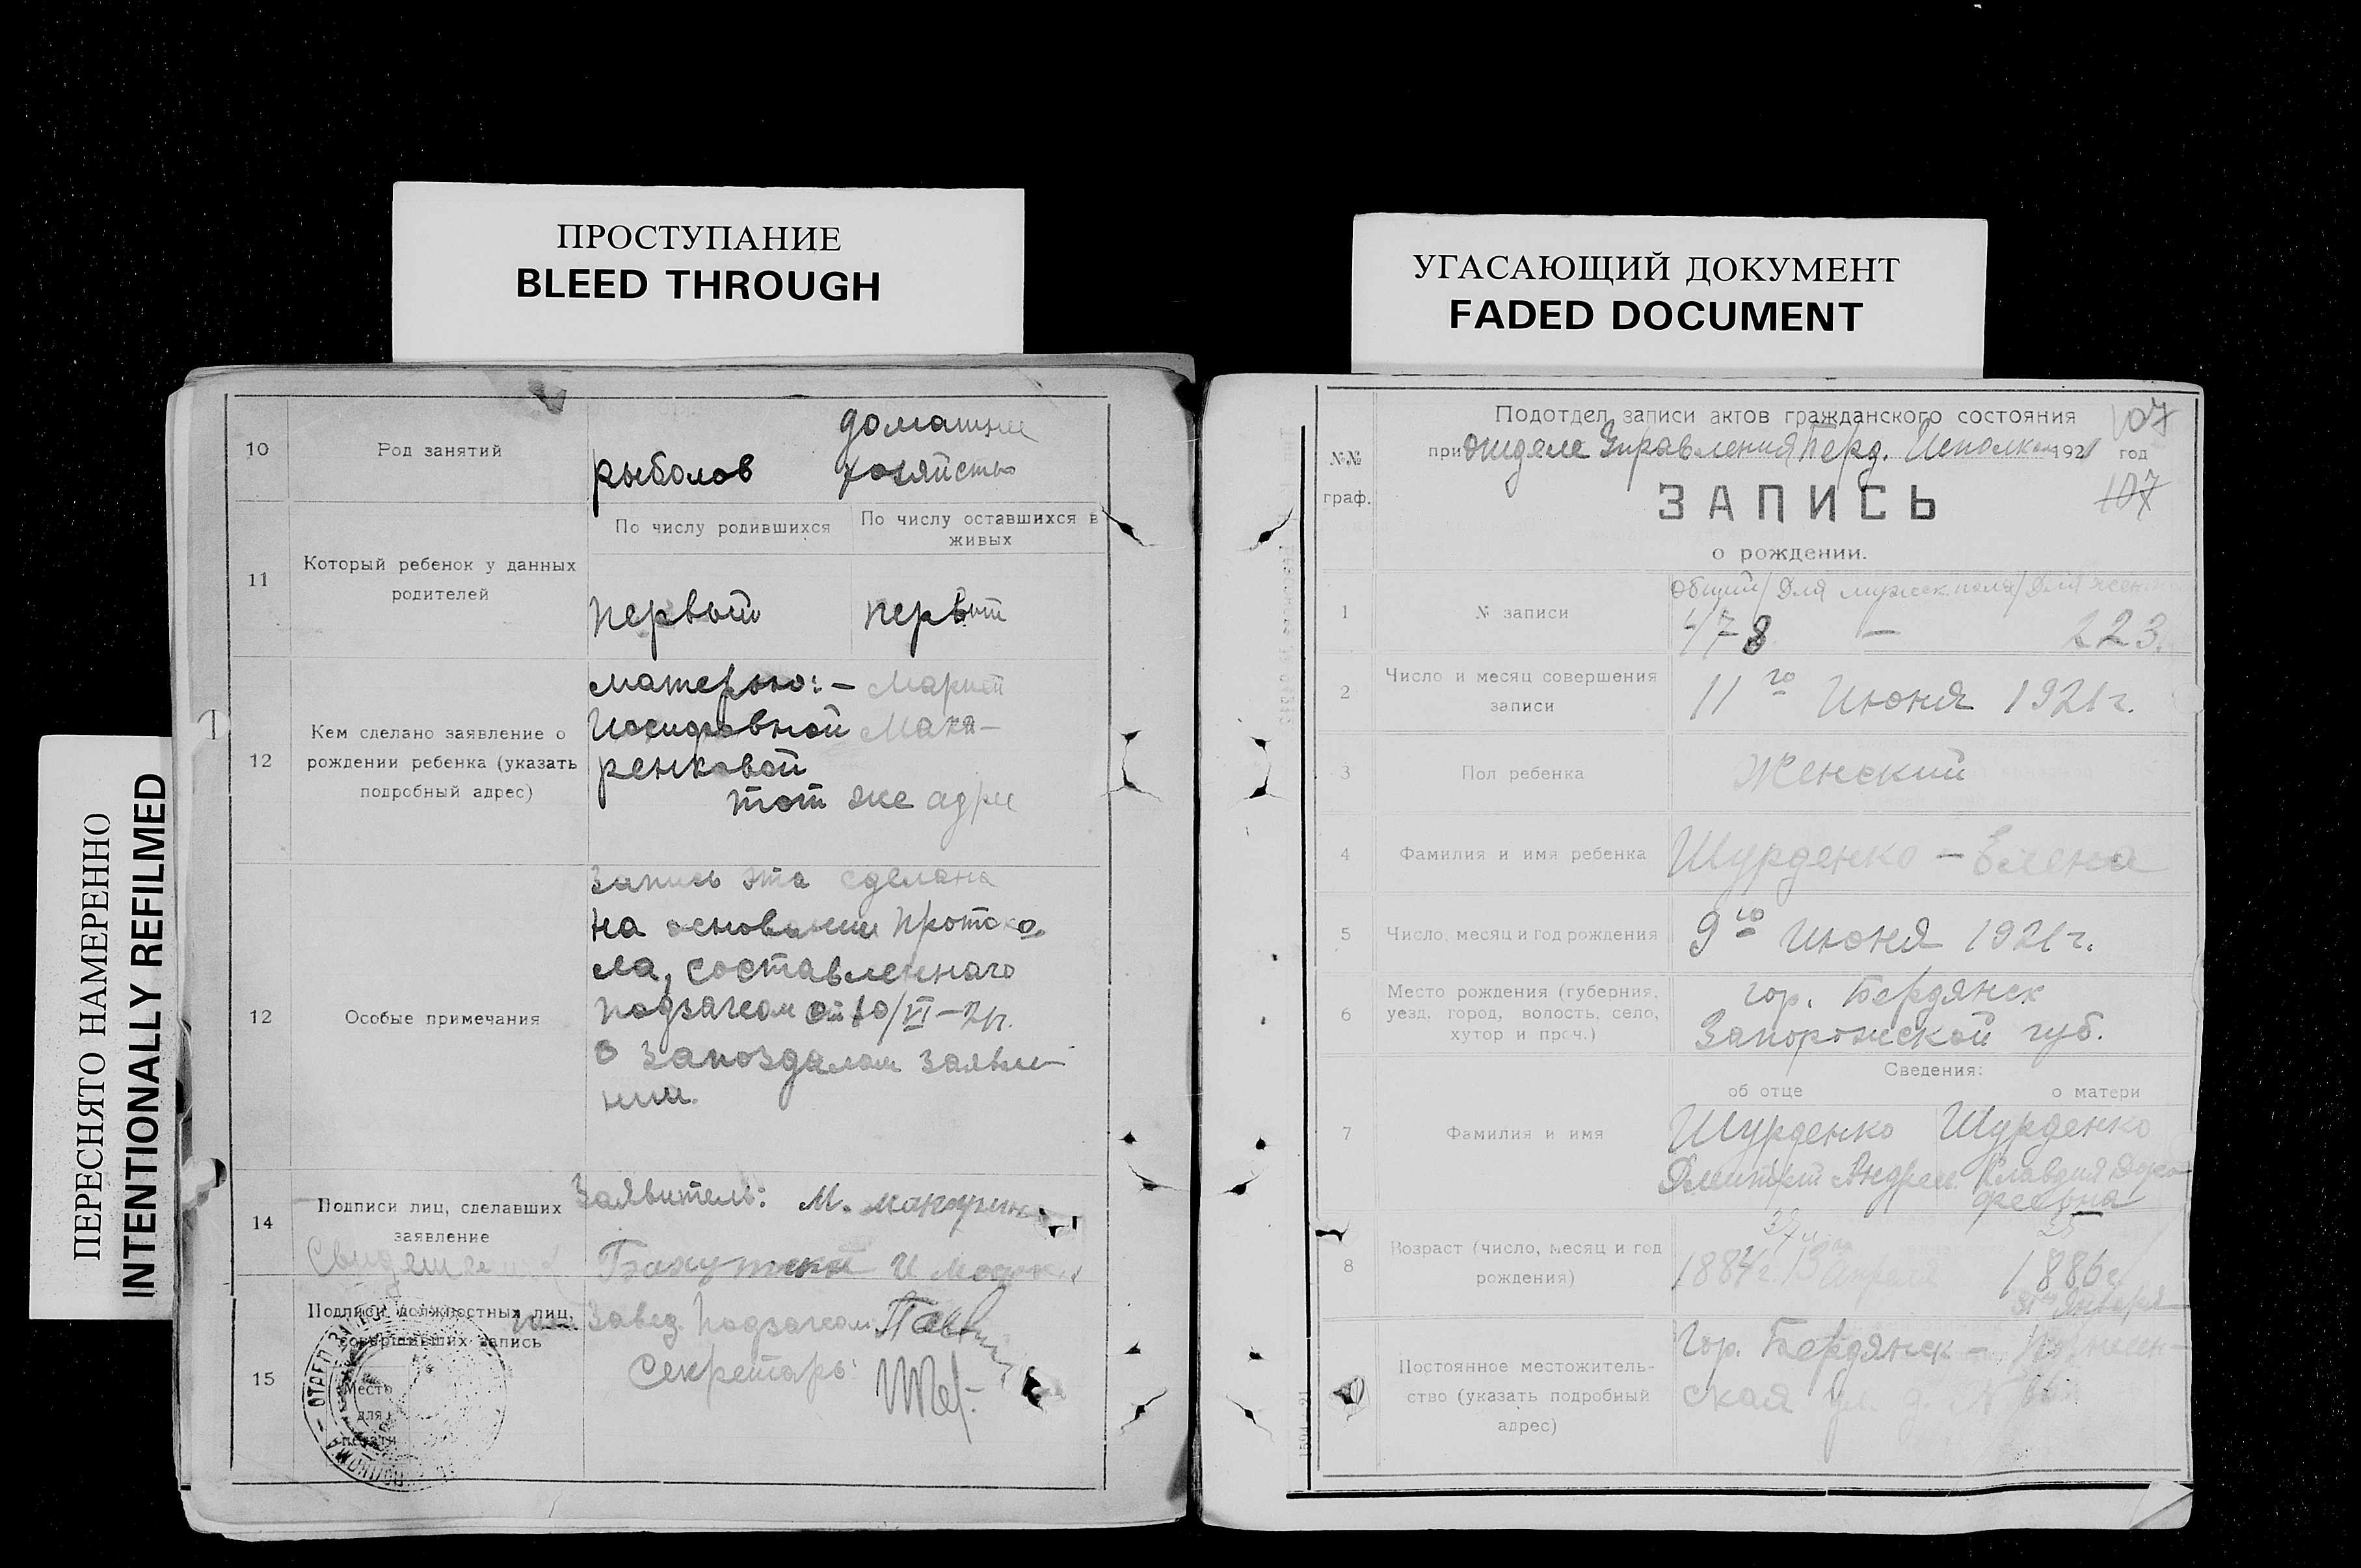 ПРОСТУПАНИЕ
BLEED THROUGH
УГАСАЮЩИЙ ДОКУМЕНТ
FADED DOCUMENT
ПЕРЕСНЯТО НАМЕРЕННО
INTENTIONALLY REFILMED
10
Род занятий
рыболов
домашнее
хозяйство
11
Который ребенок у данных
родителей
По числу родившихся
По числу оставшихся в
живых
первый
первый
12
Кем сделано заявление о
рождении ребенка (указать
подробный адрес)
матерью: – Марией
Иосифовной Мака-
ренковой
тот же адрес
12
Особые примечания
Запись эта сделана
на основании прото
ла, составленнаго
подзагсом от 10/VI – 21г.
о запоздалом заявле-
нии.
14
Подписи лиц, сделавших
заявление
Заявитель: М.
15
Подписи должностных лиц,
совершивших запись
Место
для
печати
Завед. Подзагсом
Секретарь:
№№
граф.
Подотдел записи актов гражданского состояния
при отделе Управления Берд. Исполком 1921 год
107
107
ЗАПИСЬ
о рождении.
1
№ записи
Общий / Для мужск. пола / Для женск
478 — 223.
2
Число и месяц совершения
записи
11го Июня 1921 г.
3
Пол ребенка
Женский
4
Фамилия и имя ребенка
Шурденко – Елена
5
Число, месяц и год рождения
9го Июня 1921 г.
6
Место рождения (губерния,
уезд, город, волость, село,
хутор и проч.)
гор. Бердянск
Запорожской губ.
Сведения:
об отце
о матери
7
Фамилия и имя
Шурденко
Дмитрий Андреев.
Шурденко
Клавдия Доро
феевна
8
Возраст (число, месяц и год
рождения)
1884 г. 13 Апреля
1886 г.
Января
Постоянное местожитель-
ство (указать подробный
адрес)
Гор. Бердянск –
ская ул. д. № 66